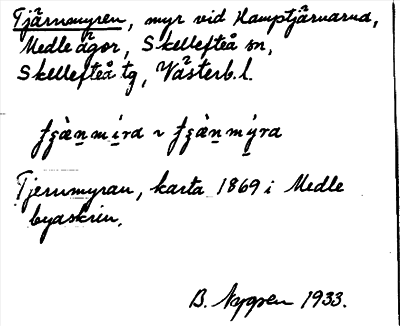 Tjärnmyren, myr vid Kamptjärnarna,
Medle ägor, Skellefteå sn,
Skellefteå tg, Västerb. l.
Tjernmyran, karta 1869 i Medle
byaskrin.
B. Nygren 1933.